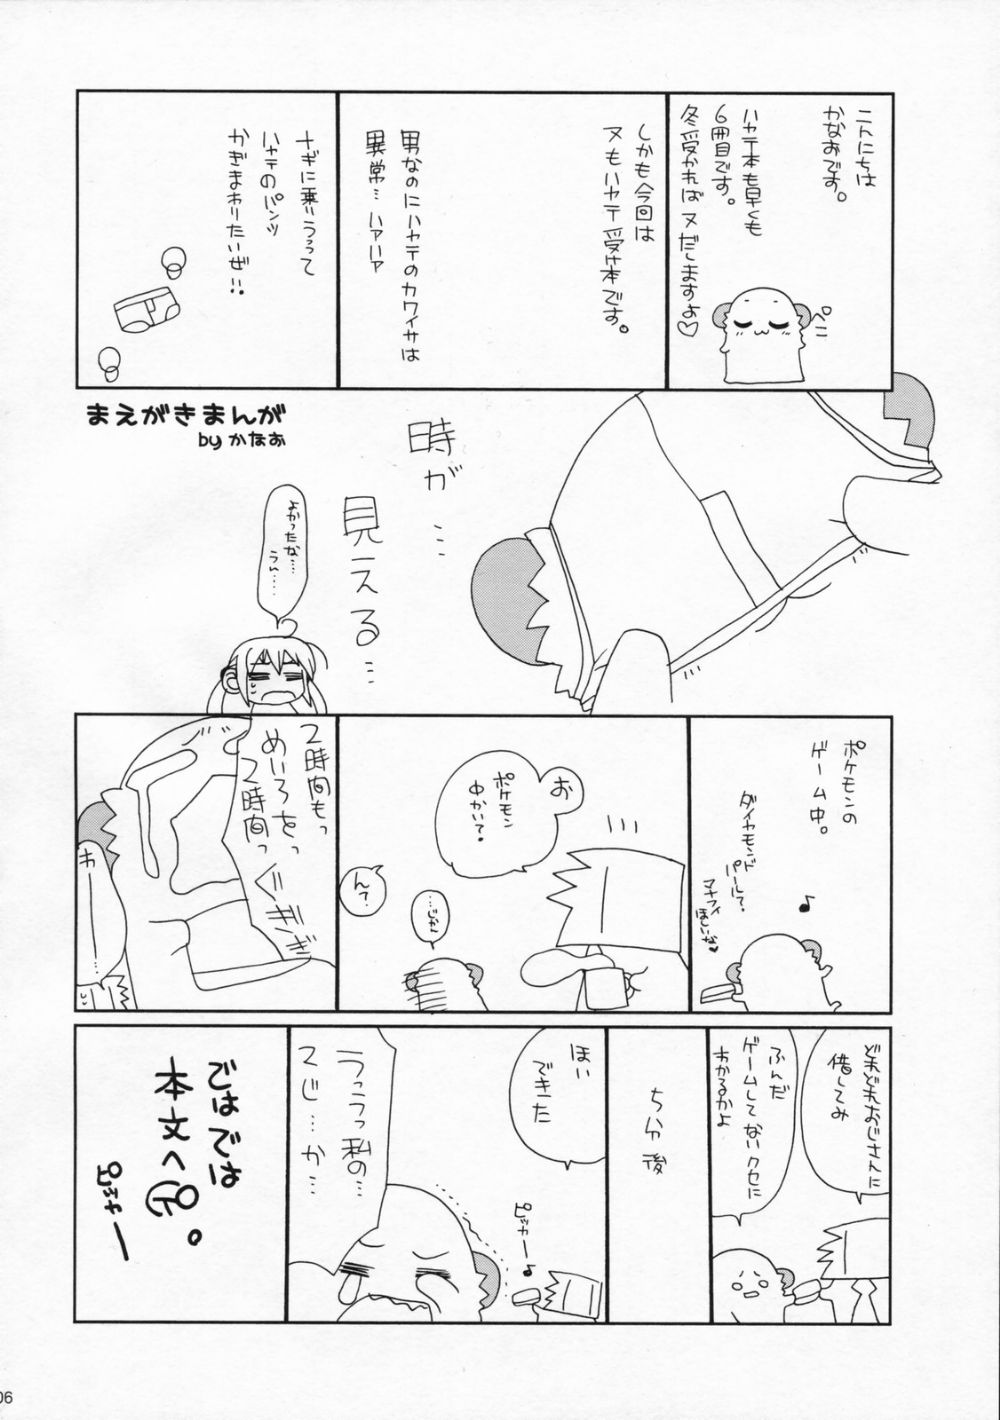 こんにちは
かなおです。
ハヤテ本も早くも
6冊目です。
冬受かればヌだしますよ♡
ペこ
しかも今回は
ヌもハヤテ受け本です。
男なのにハヤテのカワイサは
異常… ハァハァ
ナギに乗りうつって
ハヤテのパンツ
かぎまわりたいぜ!!
まえがきまんが
by かなお
時が…
見える…
よかったな…
うん…
ポケモンの
ゲーム中。
ダイヤモンド
パールで。
マナフィ
ほしいな♥
♪
お
ポケモン
中かい?
…じかん
んで?
2時間もっ
めいろをっ
2時間っ
ギギギ
どれどれおじさんに
借してみ
ふんだ
ゲームしてないクセに
わかるかよ
5分後
ほい
できた
ピッキャー♪
うっうっ私の…
2じ…か…
ではでは
本文へGO。
ピッキャー
06